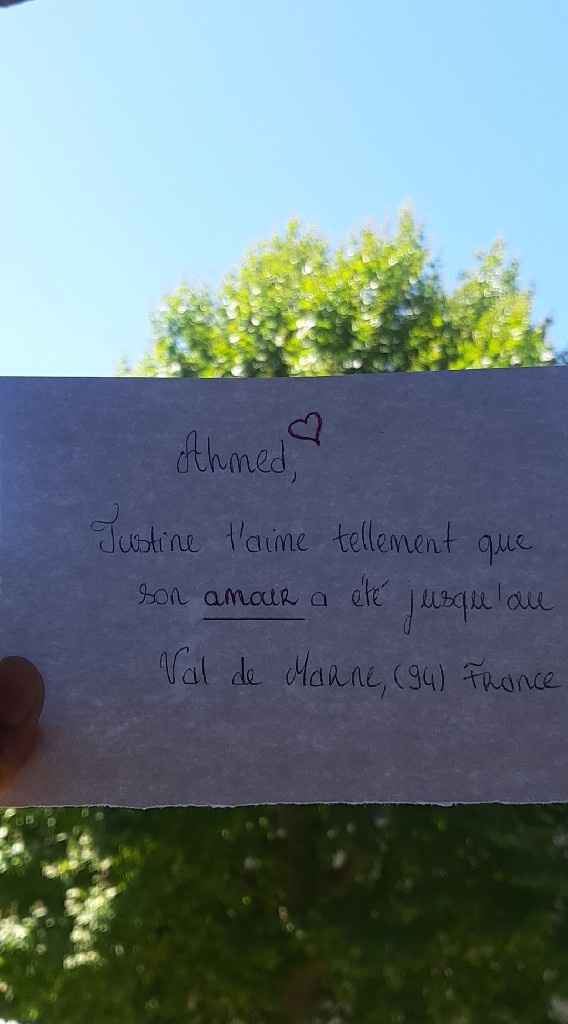 Ahmed,
Justine t'aime tellement que
son amour a été jusqu'au
Val de Marne, (94) France